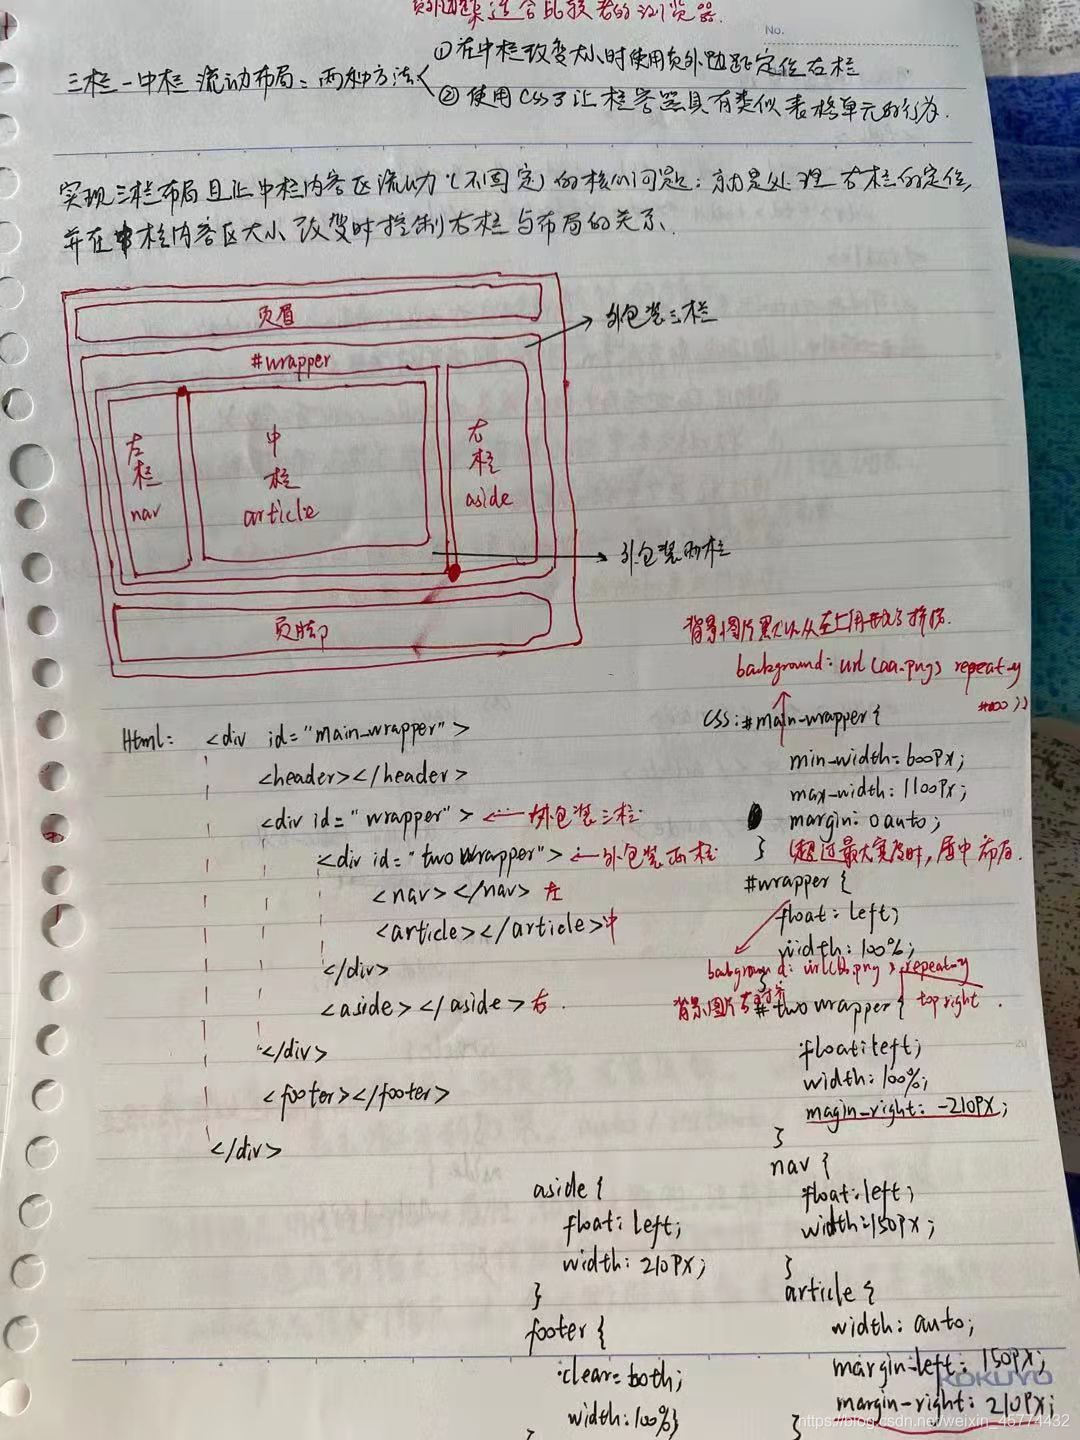 负外边距适合比较老的浏览器.
No.
三栏-中栏流动布局：两种方法
①在中栏改变大小时使用负外边距定位右栏
②使用CSS3让栏容器具有类似表格单元的行为.
实现三栏布局且让中栏内容区流动(不固定)的核心问题：就是处理右栏的定位,
并在中栏内容区大小改变时控制右栏与布局的关系.
页眉
外包装三栏
#wrapper
左栏
nav
中栏
article
右栏
aside
外包装两栏
页脚
背景图片默认从左上角开始拼接.
background: url(aa.png) repeat-y
Html:
<div id="main_wrapper">
<header></header>
<div id="wrapper"> ← 外包装三栏
<div id="twoWrapper"> ← 外包装两栏
<nav></nav> 左
<article></article> 中
</div>
<aside></aside> 右.
</div>
<footer></footer>
</div>
CSS: #main-wrapper{
min-width: 600px;
max-width: 1100px;
margin: 0 auto;
} (超过最大宽度时, 居中布局.
#wrapper {
float: left;
width: 100%;
background: url(bb.png) repeat-y
top right.
}
背景图片右对齐
#twowrapper{
float: left;
width: 100%;
magin-right: -210px;
}
nav {
float: left;
width: 150px;
}
article {
width: auto;
margin-left: 150px;
margin-right: 210px;
}
aside {
float: left;
width: 210px;
}
footer {
clear: both;
width: 100%;
}
KOKUYO
https://blog.csdn.net/weixin_45774432